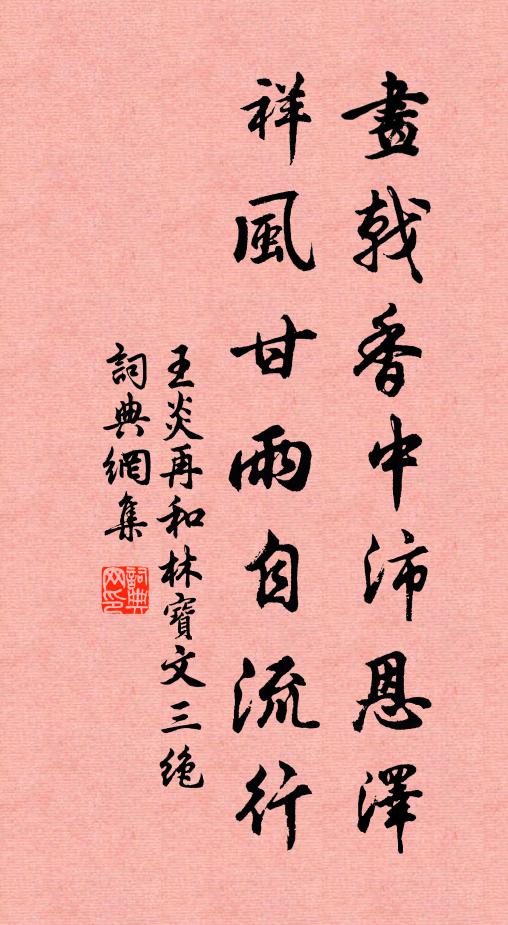 畫戟香中沛恩澤
祥風甘雨自流行
王炎再和林寶文三絶
詞典網集
詞典网印